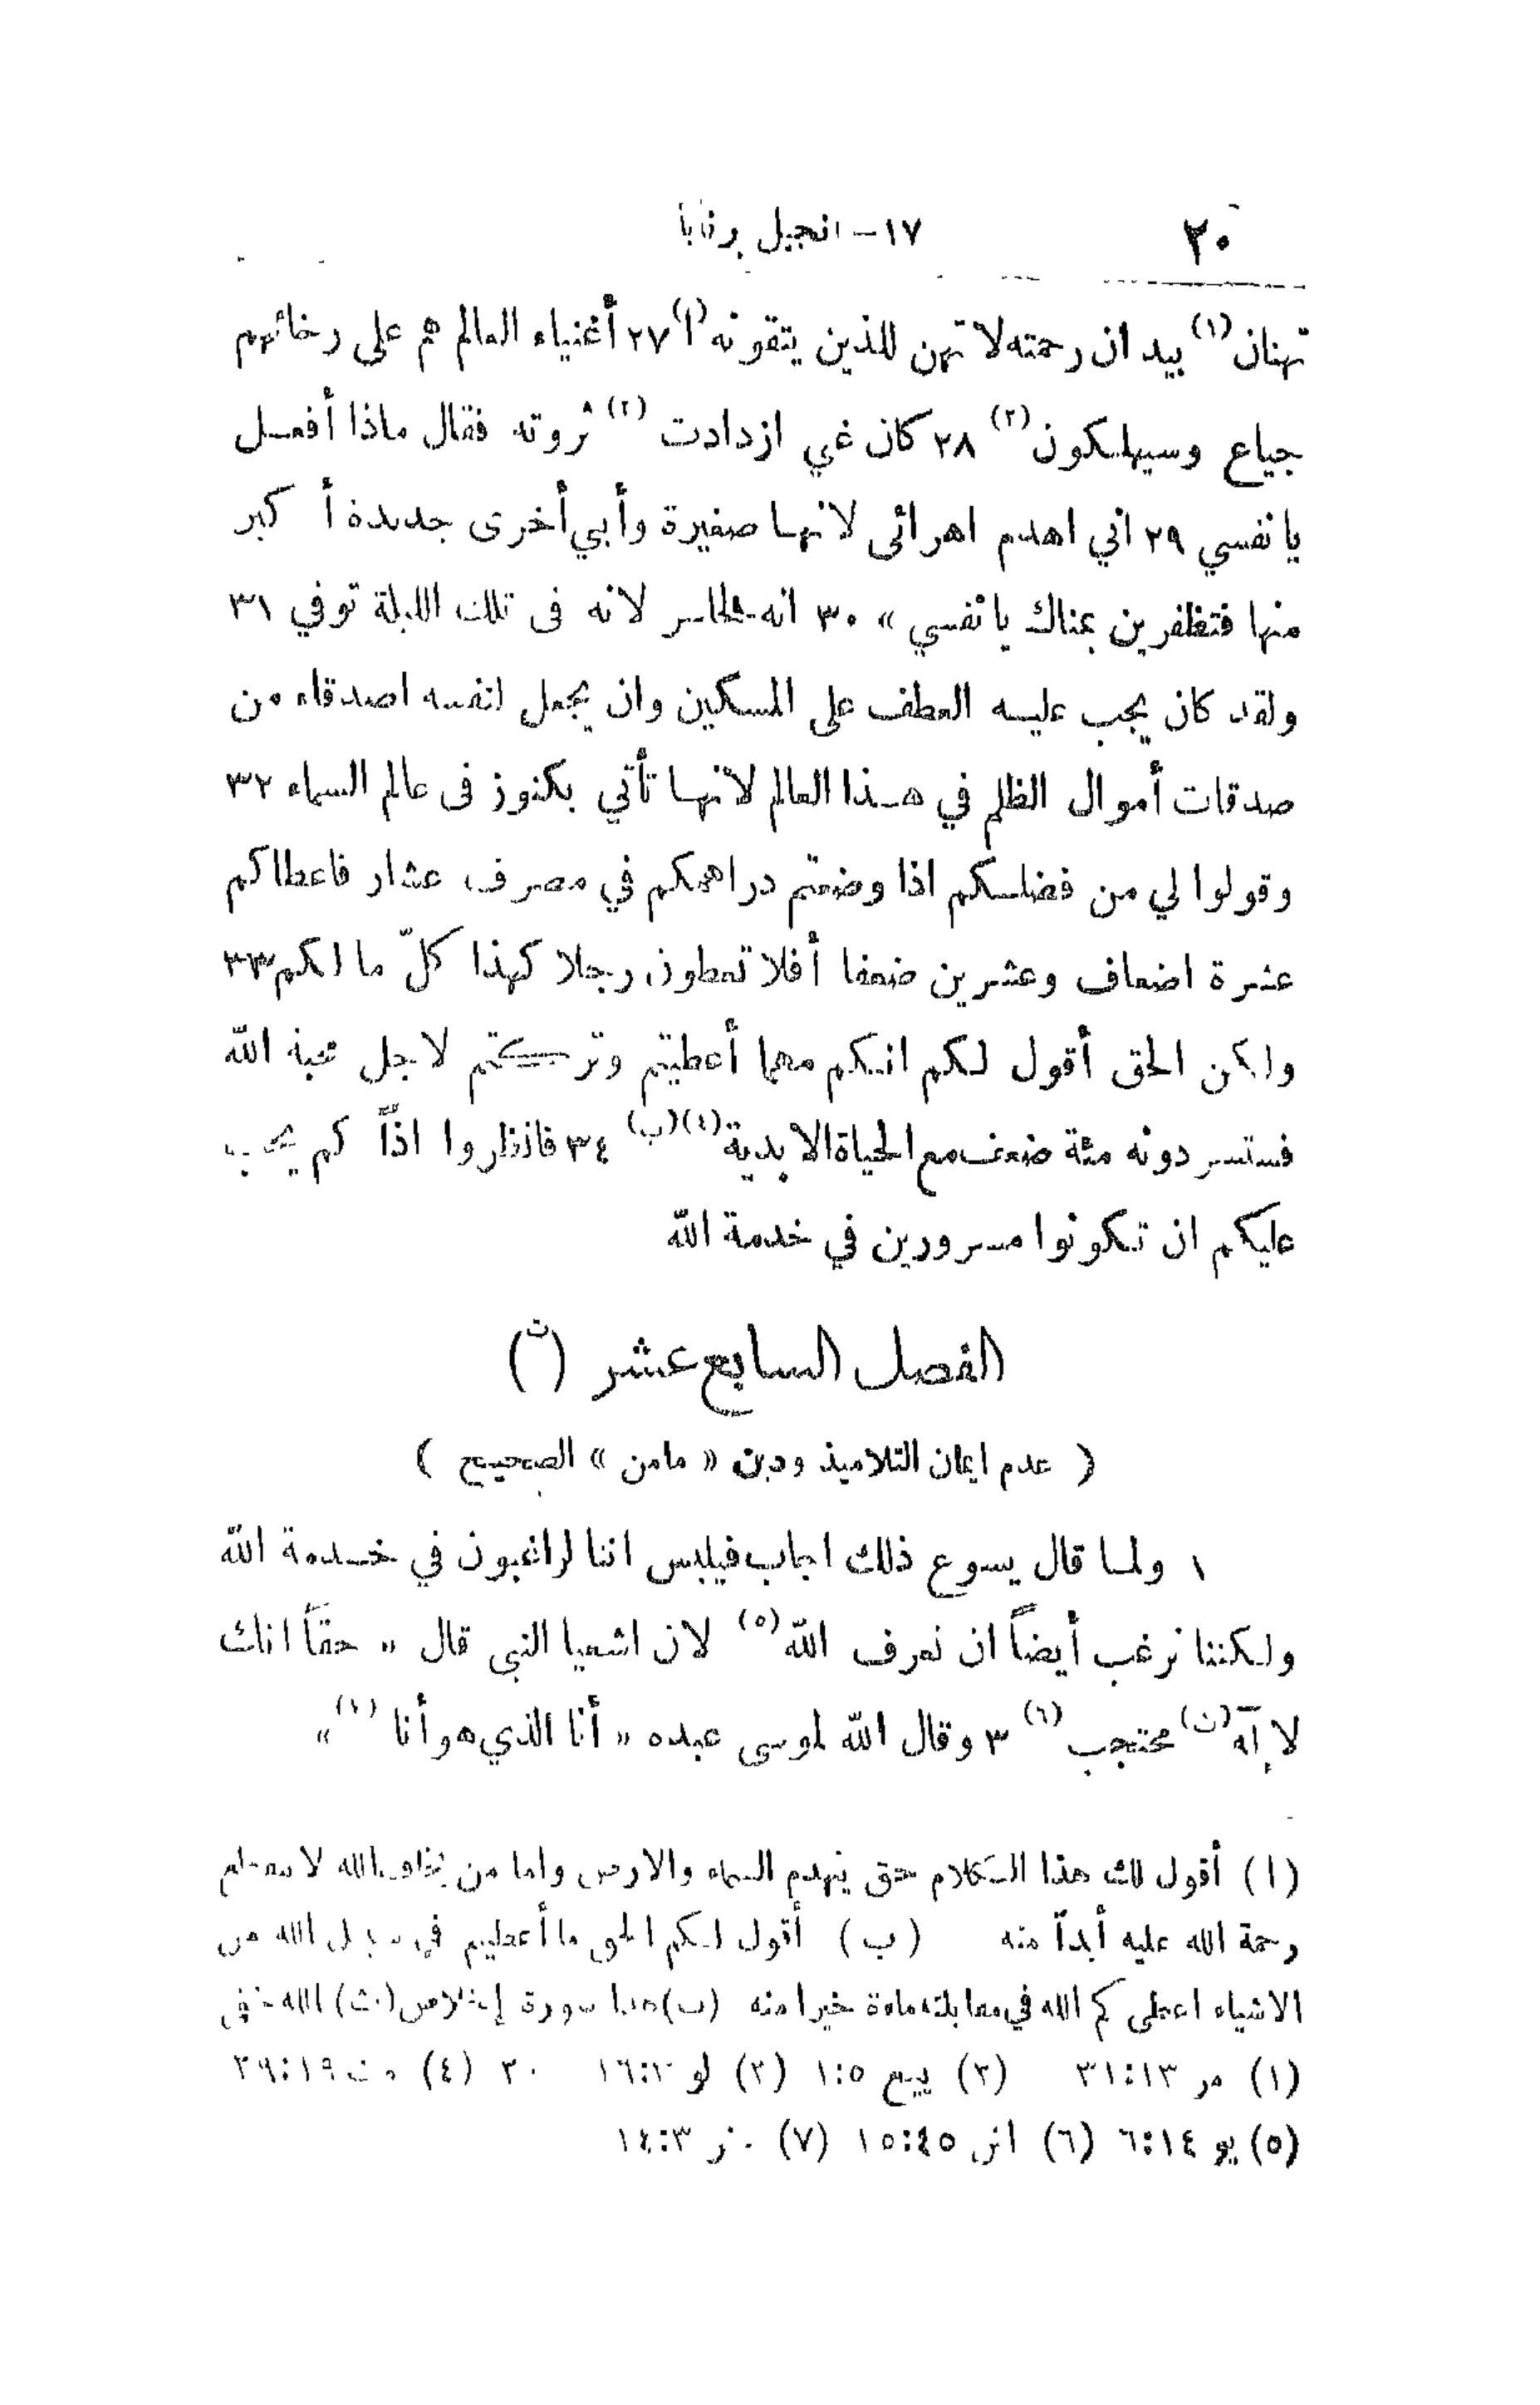 ٢٠ ١٧– انجيل برنابا
تهنان(١) بيد ان رحمته لا تهن للذين يتقونه(ا) ٢٧ أغنياء العالم هم على رخائهم
جياع وسيهلكون(٢) ٢٨ كان غي ازدادت(٣) ثروته فقال ماذا أفعل
يا نفسي ٢٩ اني اهدم اهرائى لانها صغيرة وأبي أخرى جديدة أكبر
منها فتظفرين بمناك يا نفسي » ٣٠ انه لخاسر لانه فى تلك الليلة توفي ٣١
ولقد كان يجب عليه العطف على المسكين وان يجعل لنفسه اصدقاء من
صدقات أموال الظلم في هذا العالم لانها تأتي بكنوز فى عالم السماء ٣٢
وقولوا لي من فضلكم اذا وضعتم دراهمكم في مصرف عشار فاعطاكم
عشرة اضعاف وعشرين ضعفا أفلا تعطون رجلا كهذا كلّ ما لكم ٣٣
ولكن الحق أقول لكم انكم مهما أعطيتم وتركتم لاجل محبة الله
فستستردونه مئة ضعف مع الحياة الابدية(٤)(ب) ٣٤ فانظروا اذاً كم يجب
عليكم ان تكونوا مسرورين في خدمة الله
الفصل السابع عشر (ت)
( عدم ايمان التلاميذ ودين « مامن » الصحيح )
١ ولما قال يسوع ذلك اجاب فيلبس اننا لراغبون في خدمة الله
ولكننا نرغب أيضاً ان نعرف الله(٥) لان اشعيا النبي قال « حقاً انك
لا إله(ث) محتجب(٦) ٣ وقال الله لموسى عبده « أنا الذي هو أنا »
(ا) أقول لك هذا الكلام حق ينهدم السماء والارض واما من يخاف الله لا
رحمة الله عليه أبداً منه (ب) أقول لكم الحق ما أعطيتم في سبيل الله من
الاشياء اعطى كم الله في مقابلته مادة خيرا منه (ت) هذا سورة إخلاص (ث) الله خفى
(١) مر ١٣:٣١ (٢) يع ٥:١ (٣) لو ٣٠ (٤) مت ١٩:٢٩
(٥) يو ١٤:٦ (٦) اش ٤٥:١٥ (٧) خر ٣:١٤